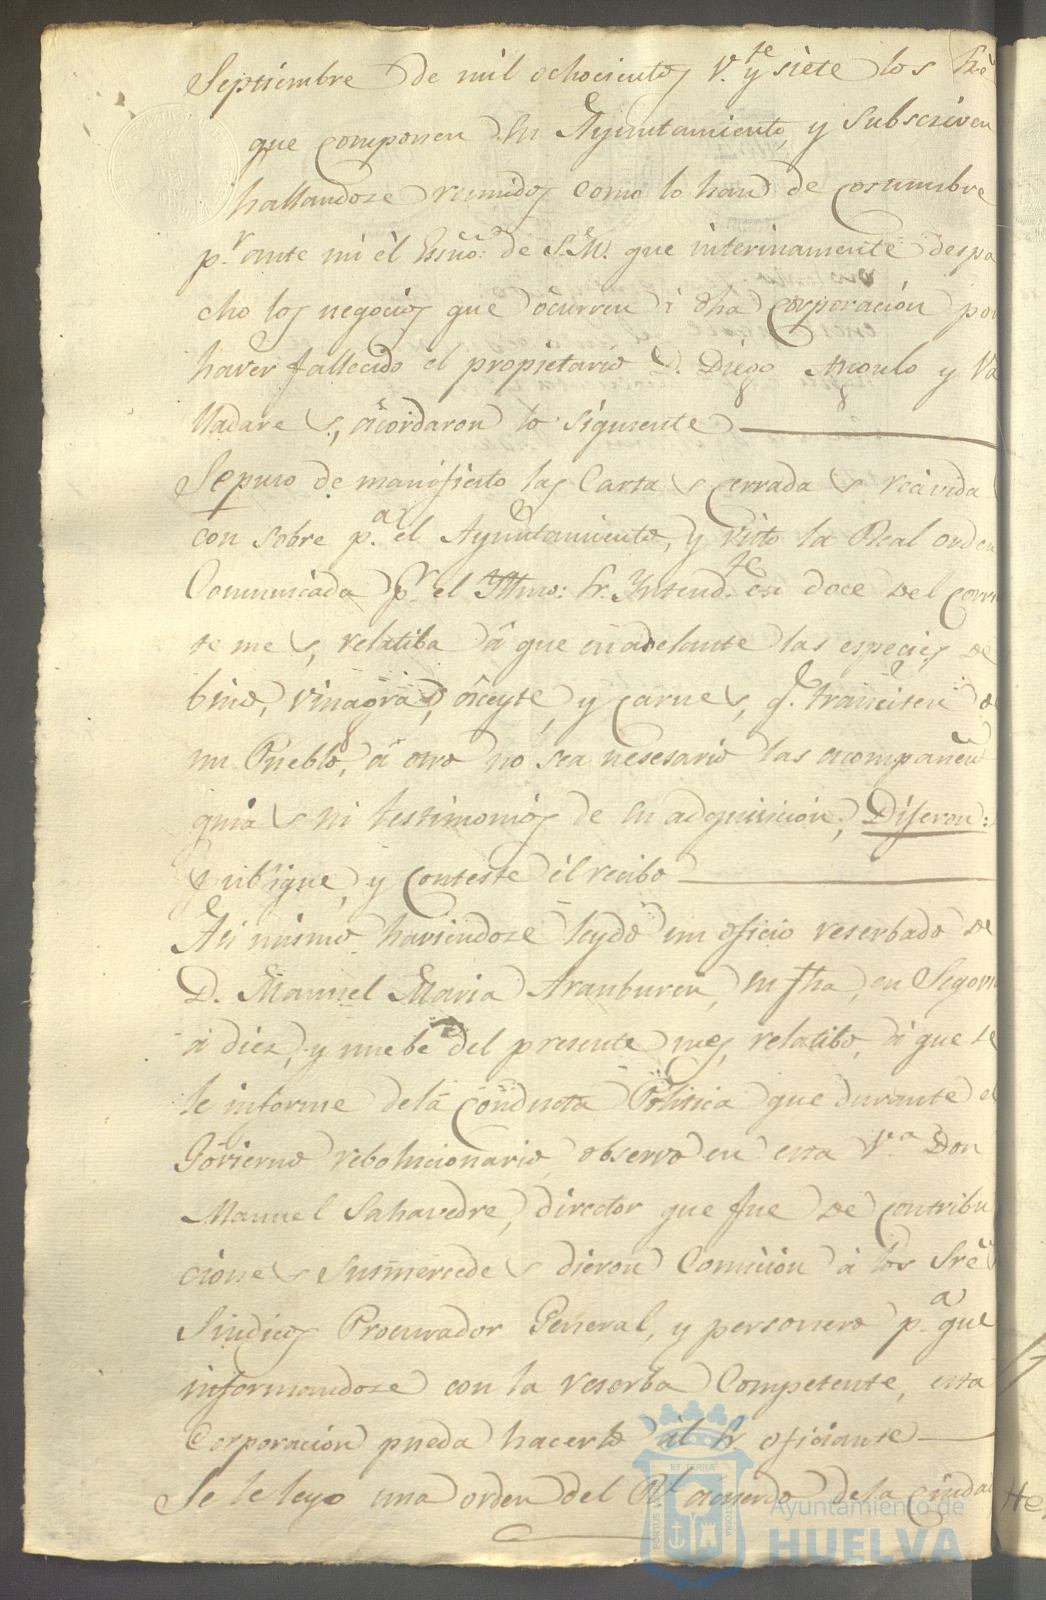 Septiembre de mil ochocientos v.te y siete los Sre
que componen su Ayuntamiento, y subscriven
hallandose reunidos como lo han de costumbre
p.r ante mi èl Essno: de S.M. que interinamente despa
cho los negocios que ocurren à dha Corporación por
haver fallecido el propietario D. Diego Angulo y Va
lladares, acordaron lo siguiente
Se puso de manifiesto las Cartas cerradas recivida
con sobre p.a el Ayuntamiento, y visto la Real orden
Comunicada p.r el Yttmo: Sr. Yntend.te en doce del corr
te mes, relatiba à que en adelante las especies de
bino, vinagra, aceyte, y carnes, q.e transiten de
un Pueblo, à otro no sea nesesario las acompañen
guias ni testimonios de su adquisicion, Dijeron:
Publique, y conteste èl recibo
Asi mismo haviendose leydo un oficio reserbado de
D. Manuel Maria Aranburen, su fha, en Segorv
à diez, y nuebe del presente mes, relatibo, à que se
le informe dela Conducta Politica que durante el
Govierno rebolucionario observo en esta V.a Don
Manuel Sahavedre, director que fue de contribu
ciones Susmercedes dieron Comicion à los Sres
Sindicos Procurador General, y personero p.a que
informandose con la reserba Competente, esta
Corporacion pueda hacerlo àl Sr. oficiante
Se le leyo una orden del Rl. acuerdo dela Ciudad
PORTUS
ET TERRAE
CUSTODIA
Ayuntamiento de
HUELVA